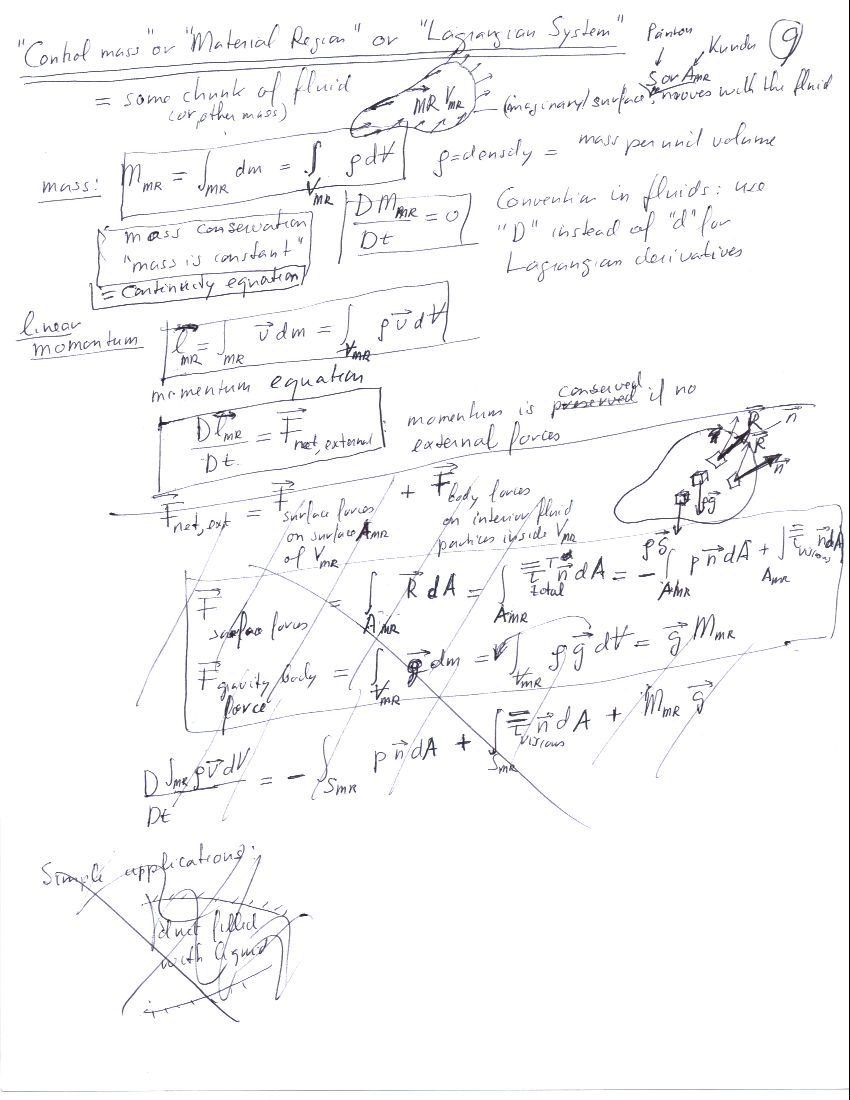 "Control mass" or "Material Region" or "Lagrangian System"
Panton
Kundu
9
= some chunk of fluid
(or other mass)
MR V_MR
S or A_MR
(imaginary) surface, moves with the fluid
mass: M_MR = ∫_MR dm = ∫_V_MR ρ dV
ρ = density = mass per unit volume
mass conservation
"mass is constant"
= Continuity equation
DM_MR/Dt = 0
Convention in fluids: use
"D" instead of "d" for
Lagrangian derivatives
linear
momentum
l⃗_MR = ∫_MR v⃗ dm = ∫_V_MR ρ v⃗ dV
momentum equation
Dl⃗_MR/Dt = F⃗_net, external
: momentum is preserved conserved if no
external forces
R⃗ n⃗
R⃗
n⃗
ρg⃗
F⃗_net, ext = F⃗_surface forces + F⃗_body forces
on surface A_MR
of V_MR
on interior fluid
particles inside V_MR
F⃗_surface forces = ∫_A_MR R⃗ dA = ∫_A_MR τ_total n⃗ dA = - ∫_A_MR p n⃗ dA + ∫_A_MR τ_viscous n⃗ dA
F⃗_gravity body force = ∫_V_MR g⃗ dm = ∫_V_MR ρ g⃗ dV = g⃗ M_MR
D ∫_MR ρ v⃗ dV / Dt = - ∫_S_MR p n⃗ dA + ∫_S_MR τ_viscous n⃗ dA + M_MR g⃗
Simple applications:
duct filled
with liquid